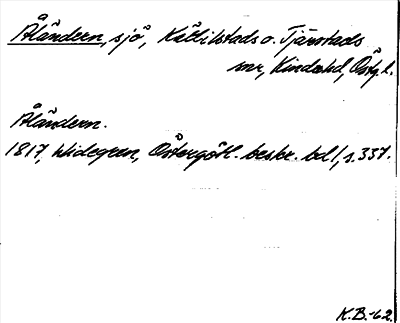 Åländern, sjö, Kättilstads o. Tjärstads
snr, Kinda hd, Östg.l.
Åländern.
1817, Widegren, Östergötl. beskr. bd 1, s. 337.
K.B.-62.